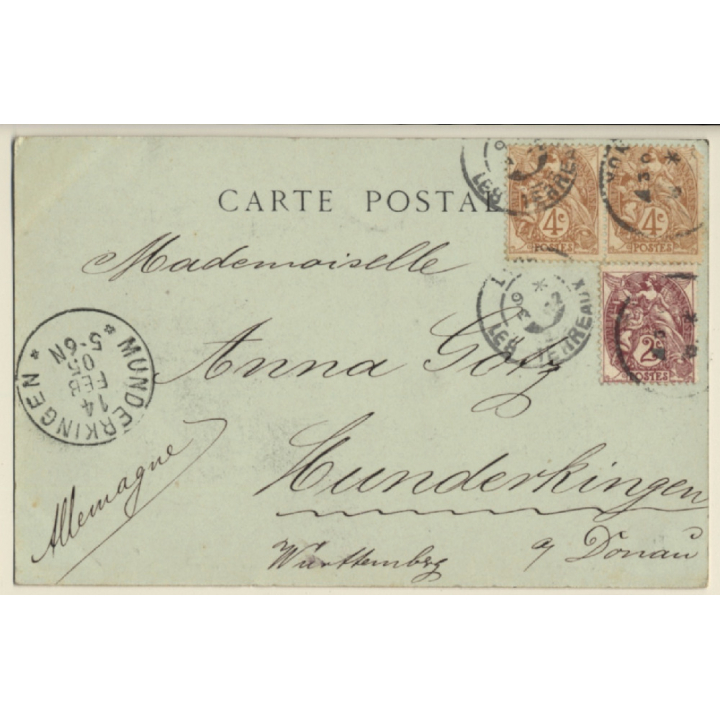 CARTE POSTAL
4c
POSTES
4c
POSTES
2c
POSTES
Mademoiselle
Anna Götz
Munderkingen
Württemberg a/ Donau
Allemagne
MUNDERKINGEN
14
FEB
05
5-6N
LES TERREAUX